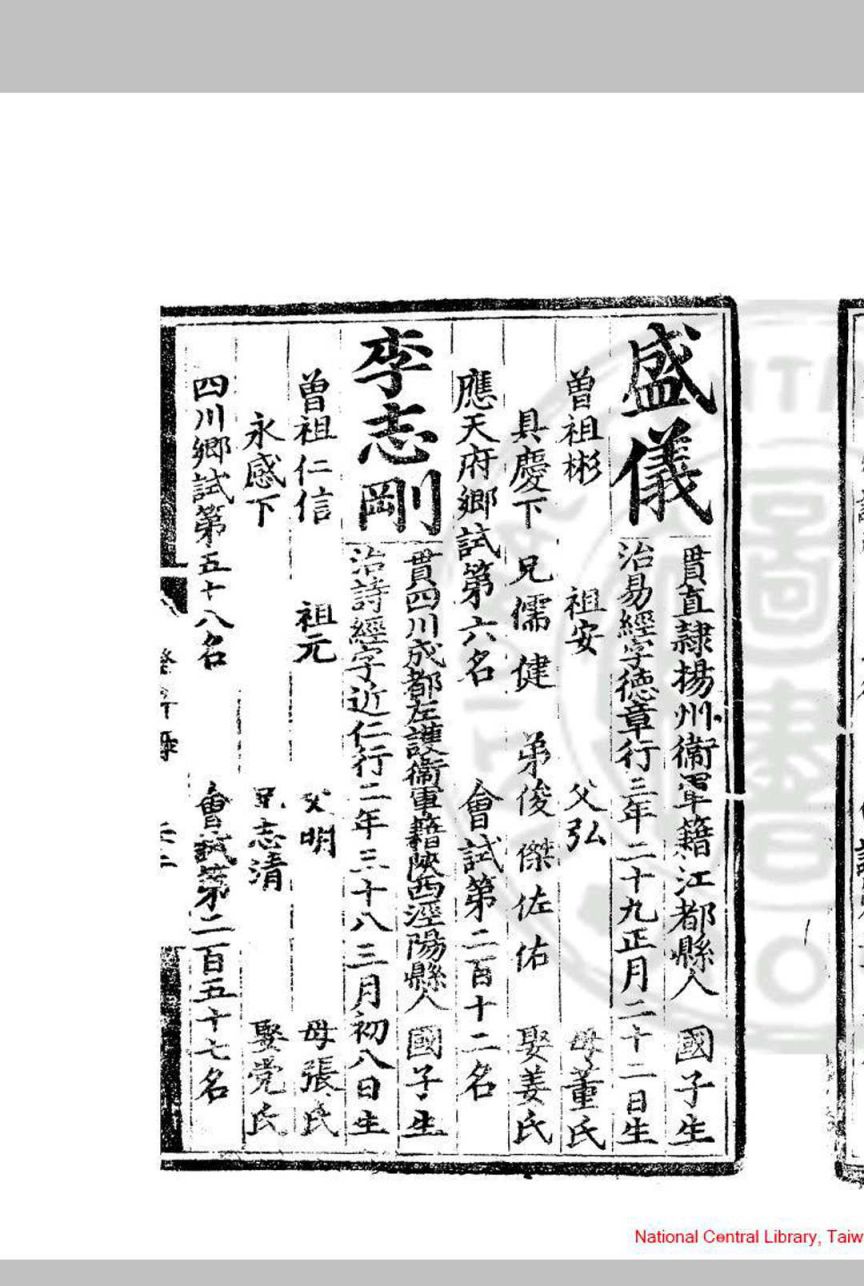 盛儀
貫直隸揚州衛軍籍江都縣人 國子生
治易經字德章行三年二十九正月二十二日生
曾祖彬 祖安 父弘 母董氏
具慶下 兄儒 健 弟俊 傑 佐 佑 娶姜氏
應天府鄉試第六名 會試第二百十二名
李志剛
貫四川成都左護衛軍籍陝西涇陽縣人 國子生
治詩經字近仁行二年三十八三月初八日生
曾祖仁信 祖元 父明 母張氏
永感下 兄志清 娶党氏
四川鄉試第五十八名 會試第二百五十七名
National Central Library, Taiw